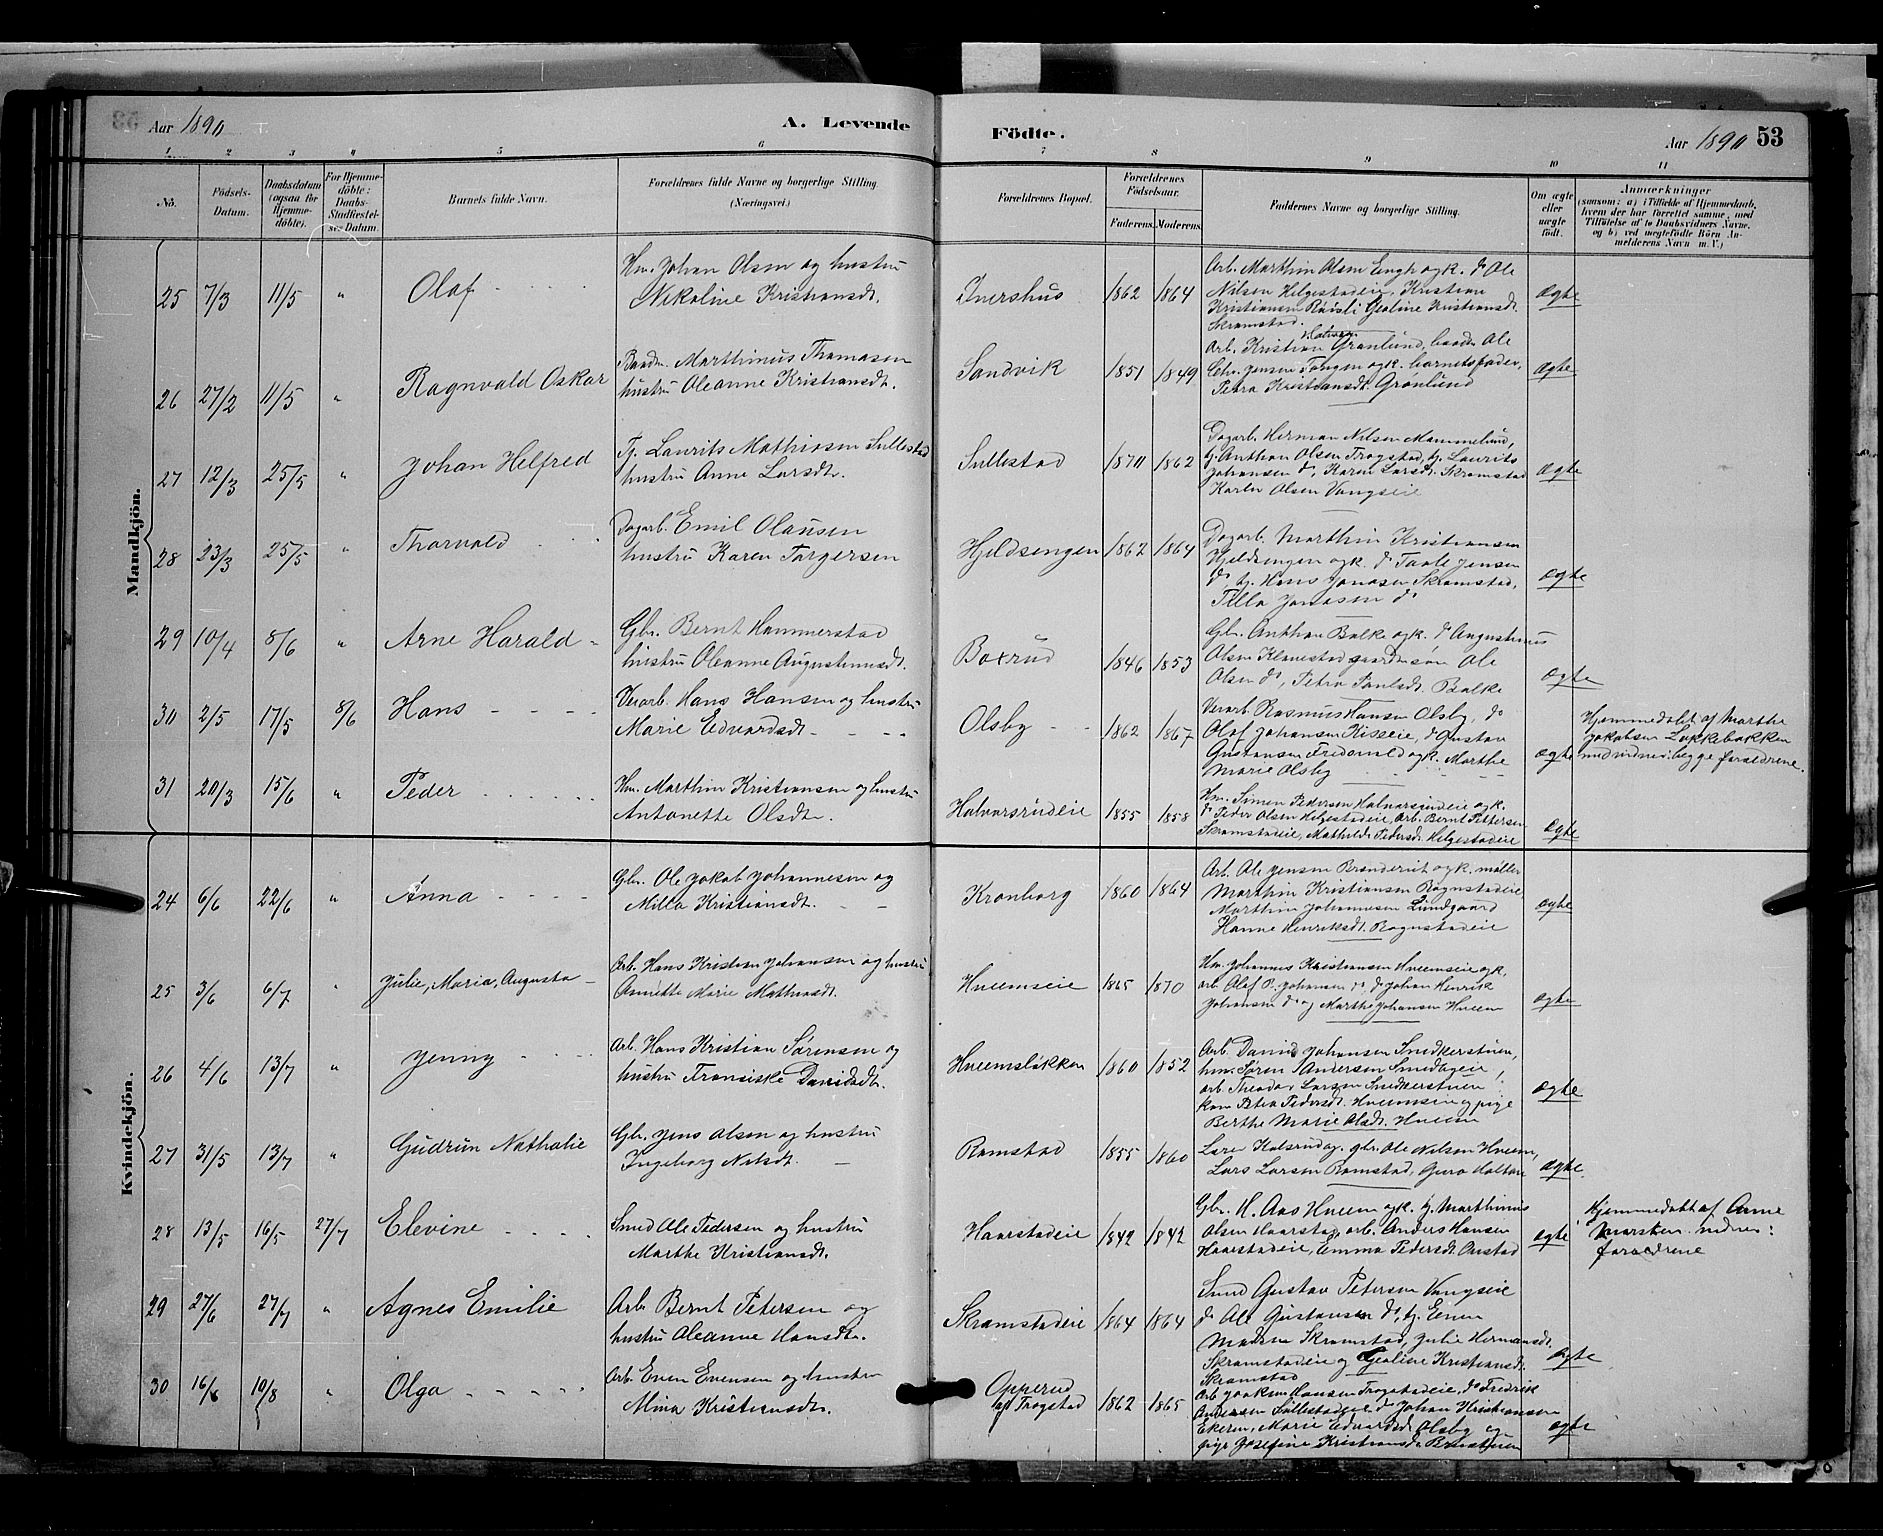 Aar 1890
A. Levende
Födte.
Aar 1890 53
1 2 3 4 5 6 7 8 9 10 11
No. Födsels-Datum. Daabsdatum (ogsaa for Hjemmedöbte). For Hjemmedöbte: Daabs-Stadfæstelses-Datum. Barnets fulde Navn. Forældrenes fulde Navne og borgerlige Stilling. (Næringsvei.) Forældrenes Bopæl. Forældrenes Födselsaar. Faderens. Moderens. Faddernes Navne og borgerlige Stilling. Om ægte eller uægte födt. Anmærkninger (saasom: a) i Tilfælde af Hjemmedaab, hvem der har forrettet samme, med Tilföielse af to Daabsvidners Navne, og b) ved uægtefödte Börn Anmelderens Navn m. V.)
Mandkjön.
25 7/3 11/5 " Olaf
Hm. Johan Olsen og hustru
Nikoline Kristiansdt.
1862 1864
Arb. Marthin Olsen Engh ogk. do Ole
Nilsen Helgestadeie, Kristian
Kristiansen Geoline Kristiansdt.
Skramstad.
ægte
26 27/2 11/5 " Ragnvald Oskar
Marthinus Thomasen
hustru Oleanne Kristiansdt.
Sandvik 1851 1849
Arb. Kristian Granlund, Ole
Chr. Jensen ogk. barnets fader,
Petra Kristiansdt. Granlund
ægte
27 12/3 25/5 " Johan Helfred
Tj. Laurits Mathiasen Sullestad
hustru Anne Larsdt.
Sullestad 1870 1862
Dagarb. Herman Nilsen
tj. Anthon Olsen Trogstad, tj. Laurits
Johansen do, Karen Larsdt. Skramstad
Karen Olsen Vangseie
ægte
28 23/3 25/5 " Thorvald
Dagarb. Emil Olausen
hustru Karen Torgersen
Hjeldsengen 1862 1864
Dagarb. Marthin Kristiansen
Hjeldsengen ogk. do Jensen
do, tj. Hans Jonasen Skramstad,
Jonasen do
ægte
29 10/4 8/6 " Arne Harald
Gbr. Bernt Hammerstad
hustru Oleanne Augustinusdt.
Boxrud 1846 1853
Gbr. Anthon Balke ogk. do Augustinus
Olsen gaardmsøn Ole
Olsen do, Petra Paulsdt. Balke
ægte
30 2/5 17/5 8/6 Hans
Verarb. Hans Hansen og hustru
Marie Edvardsdt.
Olsby 1862 1867
Verarb. Rasmus Hansen Olsby, do
Olaf Johansen do Gustav
Gustavsen ogk. Marthe
Marie Olsby
ægte
Hjemmedøbt af Marthe
Jakobsen Løkkebakken
begge forældrene.
31 20/3 15/6 " Peder
Hm. Marthin Kristiansen og hustru
Antonette Olsdt.
Halvorsrudeie 1855 1858
Hm. Simen Pedersen Halvorsrudeie ogk.
do Peder Olsen Helgestadeie, Arb. Bernt Pettersen
Skramstadeie, Mathilde Pedersdt. Helgestadeie
ægte
Kvindekjön.
24 6/6 22/6 " Anna
Gbr. Ole Jakob Johannesen og
Milla Kristiansdt.
Kronborg 1860 1864
Arb. Ole Jensen ogk. møller
Marthin Kristiansen Rognstadeie,
Marthin Johannesen Lundgaard
Hanne Henriksdt. Rognstadeie
ægte
25 3/6 6/7 " Julie, Maria, Augusta
Arb. Hans Kristian Johansen og hustru
Annette Marie Mathiasdt.
Hveemseie 1865 1870
Hm. Johannes Kristiansen Hveemseie ogk.
arb. Olaf P. Johansen do, do Johan Henrik
Johansen do og Marthe Johansen Hveem
ægte
26 4/6 13/7 " Jenny
Arb. Hans Kristian Sørensen og
hustru Fransiske Davidsdt.
Hveemsløkken 1860 1852
Arb. David Johansen Snedkerstuen,
hm. Søren Andersen
arb. Theodor Larsen Snedkerstuen
kone Petra Pedersdt. Hveemseie og pige
Berthe Marie Olsdt. Hveem
ægte
27 31/5 13/7 " Gudrun Nathalie
Gbr. Jens Olsen og hustru
Ingeborg Nilsdt.
Ramstad 1855 1860
Lærer Kalsrud og gbr. Ole Nilsen Hveem,
Lars Larsen Ramstad, Guro
ægte
28 13/5 16/5 27/7 Elevine
Smed Ole Pedersen og hustru
Marthe Kristiansdt.
Haarstadeie 1842 1842
Gbr. H. Aas Hveem ogk. tj. Marthinus
Olsen Haarstad, arb. Anders Hansen
Haarstadeie, Emma Pedersdt. Onstad
ægte
Hjemmedøbt af Anne
forældrene
29 27/6 27/7 " Agnes Emilie
Arb. Bernt Petersen og
hustru Oleanne Hansdt.
Skramstadeie 1864 1864
Smed Gustav Petersen Vangseie
do Ole Gustavsen do, tj. Even
Madsen Skramstad, Julie Hermansdt.
Skramstadeie og Geoline Kristiansdt.
Skramstad
ægte
30 16/6 10/8 " Olga
Arb. Even Evensen og hustru
Mina Kristiansdt.
Opperud
af Trogstad 1862 1865
Arb. Joakim Hansen Trogstadeie, do Fredrik
Andersen Sullestadeie do Johan Kristiansen
Ekeren, Marie Edvardsdt. Olsby og
pige Josefine Kristiansdt.
ægte